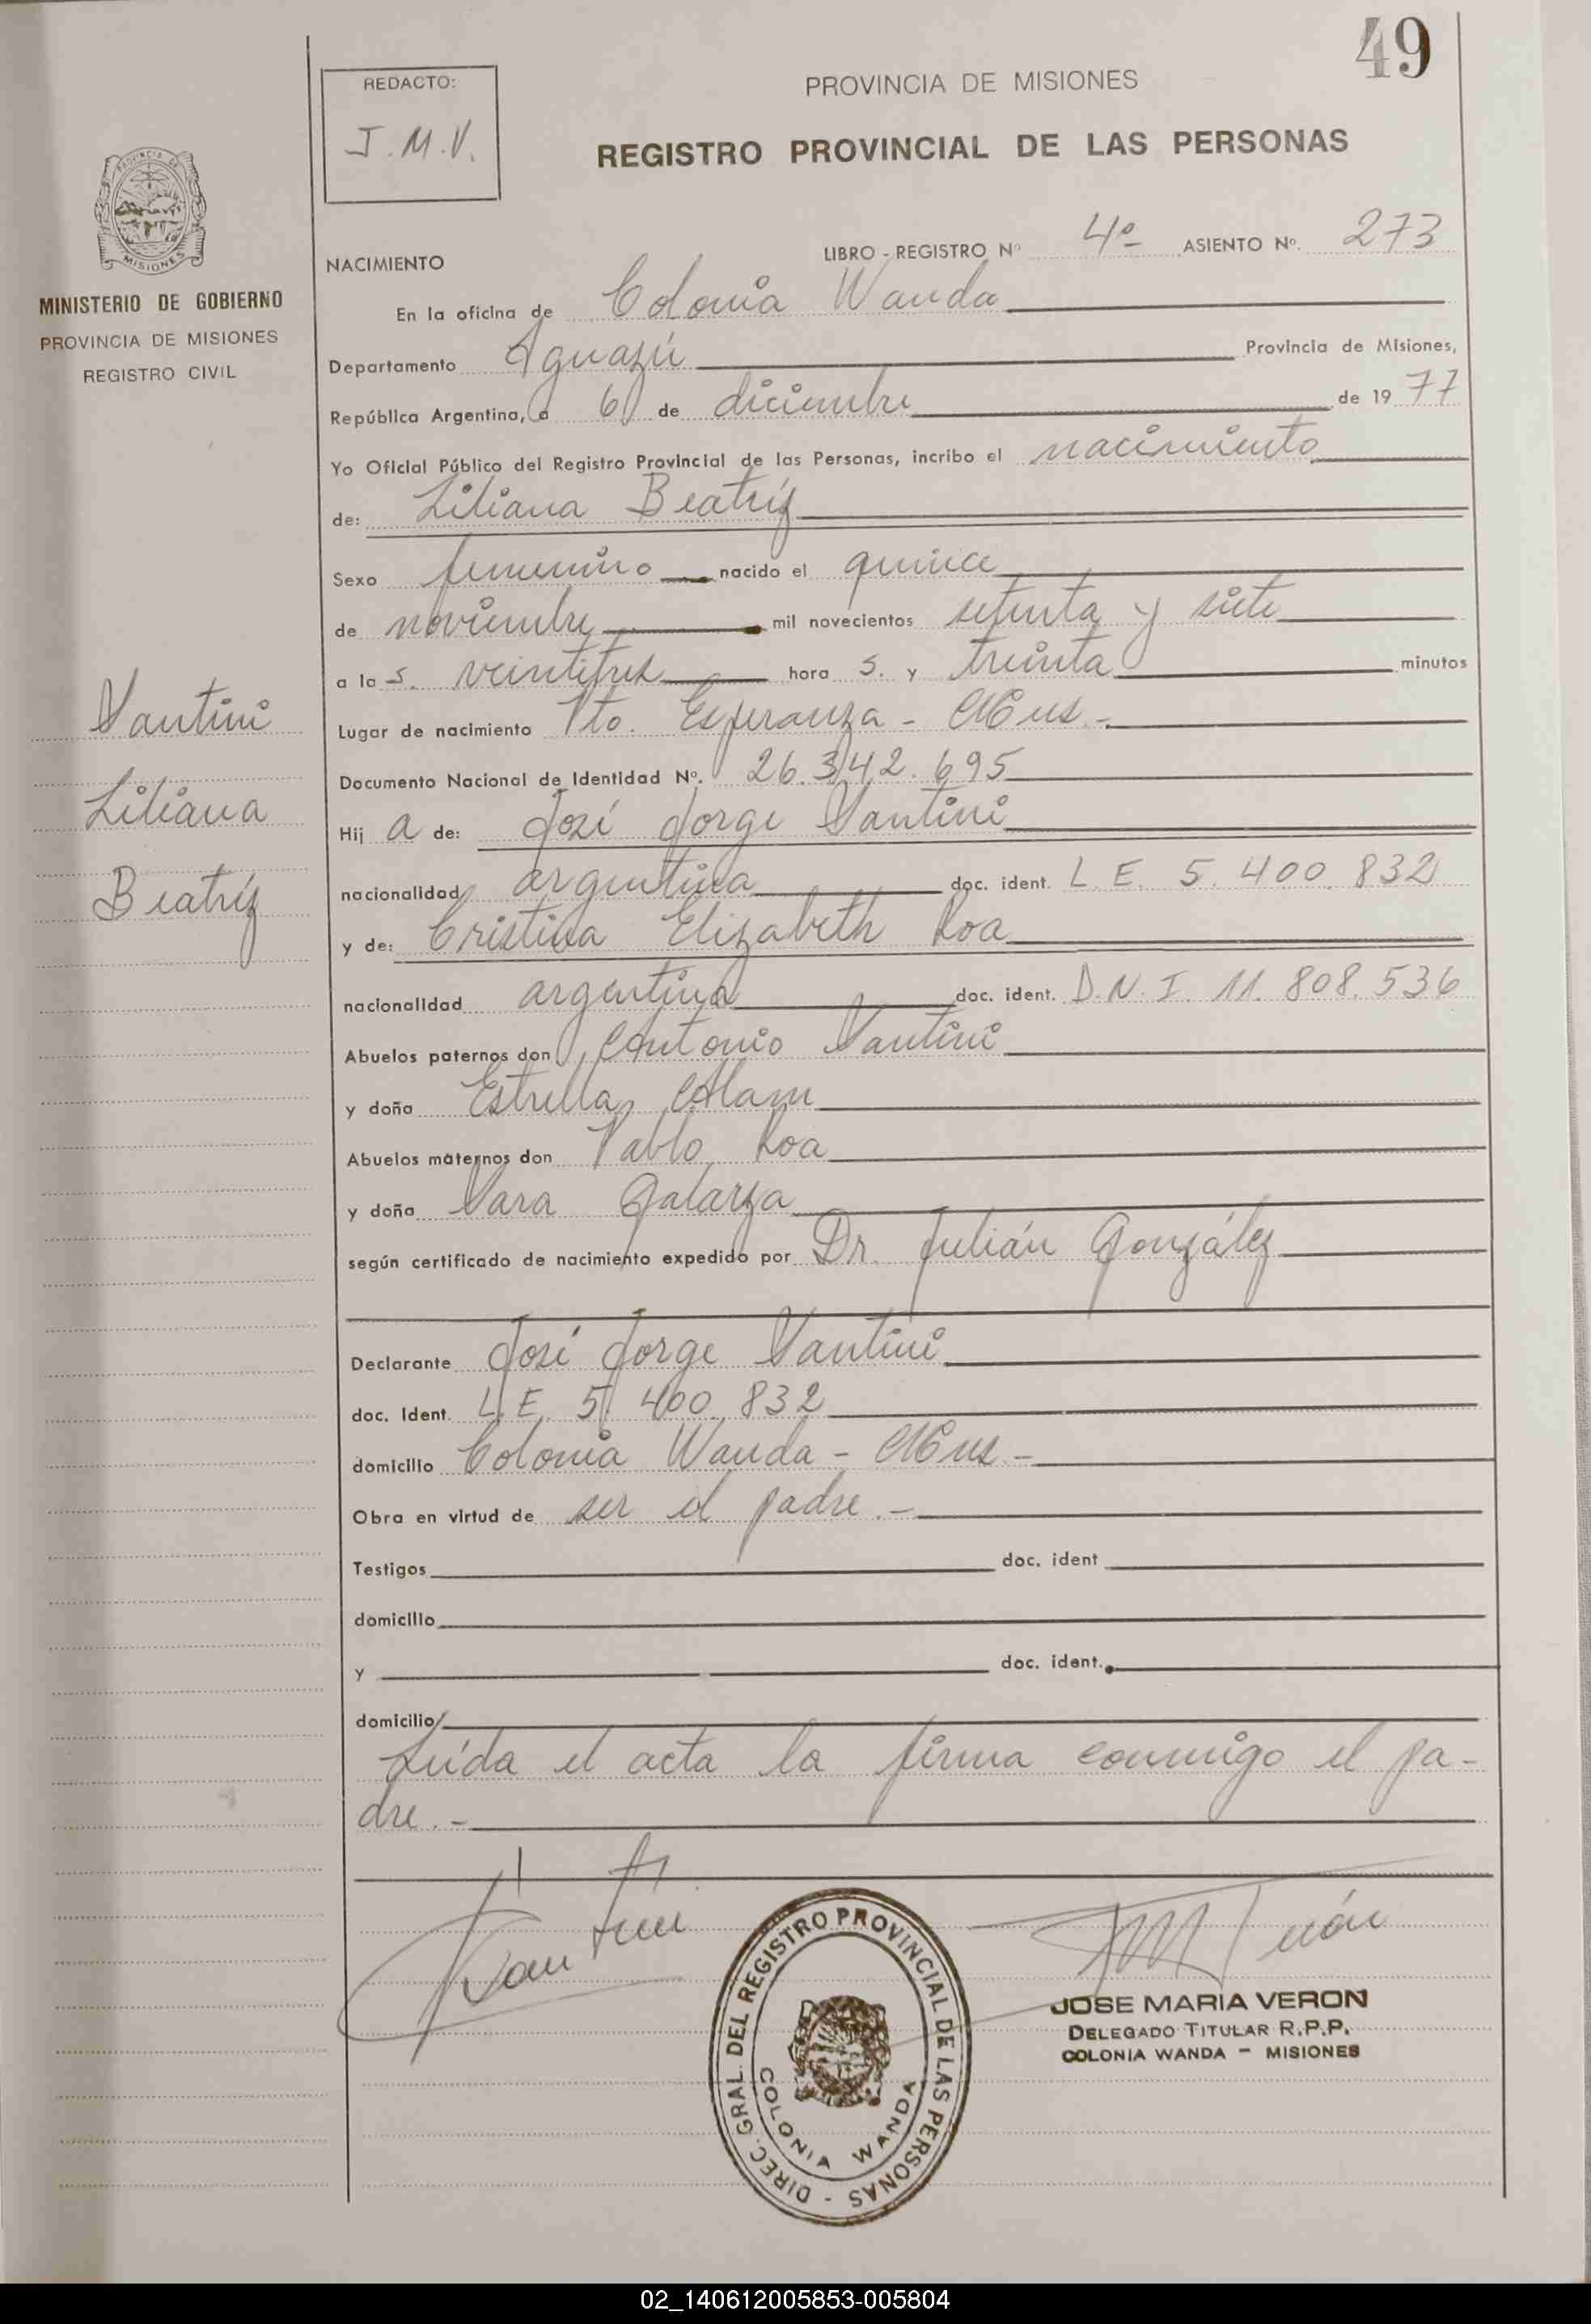 49
REDACTO:
J.M.V.
PROVINCIA DE MISIONES
REGISTRO PROVINCIAL DE LAS PERSONAS
PROVINCIA DE
MISIONES
MINISTERIO DE GOBIERNO
PROVINCIA DE MISIONES
REGISTRO CIVIL
LIBRO - REGISTRO Nº 4º ASIENTO Nº. 273
NACIMIENTO
En la oficina de Colonia Wanda
Departamento Iguazú Provincia de Misiones,
República Argentina, a 6 de diciembre de 19 77
Yo Oficial Público del Registro Provincial de las Personas, incribo el nacimiento
de: Liliana Beatríz
Sexo femenino nacido el quince
de noviembre mil novecientos setenta y siete
a la s. veintitres hora s. y treinta minutos
Lugar de nacimiento Pto. Esperanza - Mnes.-
Documento Nacional de Identidad Nº. 26.342.695
Hij a de: José Jorge Santini
nacionalidad argentina doc. ident. L.E. 5.400.832
y de: Cristina Elizabeth Roa
nacionalidad argentina doc. ident. D.N.I. 11.808.536
Abuelos paternos don Antonio Santini
y doña Estrella Alam
Abuelos maternos don Pablo Roa
y doña Sara Galarza
según certificado de nacimiento expedido por Dr. Julián González
Declarante José Jorge Santini
doc. Ident. L.E. 5.400.832
domicilio Colonia Wanda - Mnes -
Obra en virtud de ser el padre.-
Testigos doc. ident
domicilio
y doc. ident.
domicilio
Leída el acta la firma conmigo el pa-
dre.-
Santini
Liliana
Beatríz
Santini
DIREC. GRAL. DEL REGISTRO PROVINCIAL DE LAS PERSONAS -
COLONIA WANDA
JOSE MARIA VERON
DELEGADO TITULAR R.P.P.
COLONIA WANDA - MISIONES
02_140612005853-005804